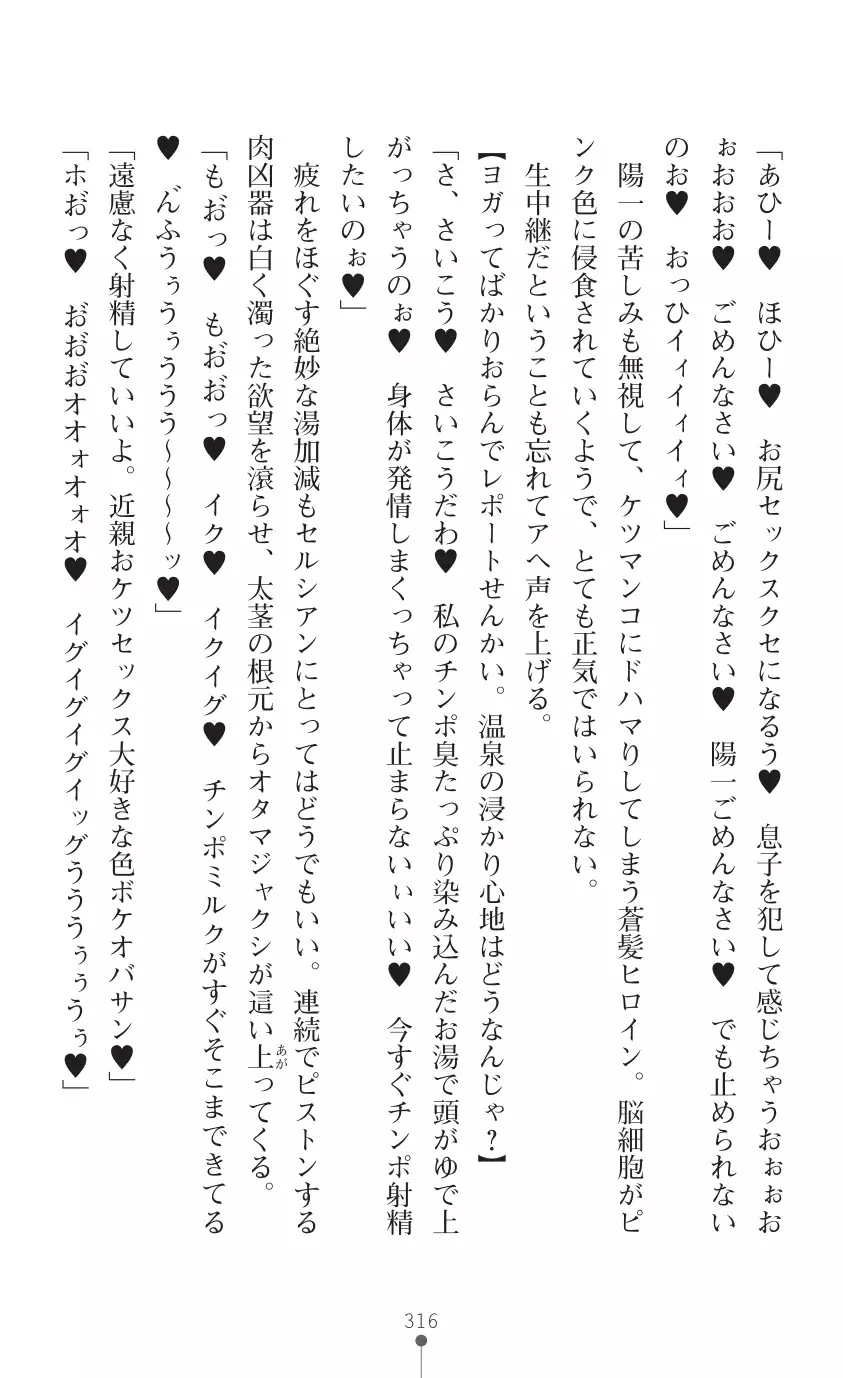 「あひー♥　ほひー♥　お尻セックスクセになるう♥　息子を犯して感じちゃうおぉぉお
ぉおおお♥　ごめんなさい♥　ごめんなさい♥　陽一ごめんなさい♥　でも止められない
のお♥　おっひイィイィイィ♥」
　陽一の苦しみも無視して、ケツマンコにドハマりしてしまう蒼髪ヒロイン。脳細胞がピ
ンク色に侵食されていくようで、とても正気ではいられない。
　生中継だということも忘れてアヘ声を上げる。
【ヨガってばかりおらんでレポートせんかい。温泉の浸かり心地はどうなんじゃ？】
「さ、さいこう♥　さいこうだわ♥　私のチンポ臭たっぷり染み込んだお湯で頭がゆで上
がっちゃうのぉ♥　身体が発情しまくっちゃって止まらないぃいい♥　今すぐチンポ射精
したいのぉ♥」
　疲れをほぐす絶妙な湯加減もセルシアンにとってはどうでもいい。連続でピストンする
肉凶器は白く濁った欲望を滾らせ、太茎の根元からオタマジャクシが這い上あがってくる。
「もお゛っ♥　もお゛お゛っ♥　イク♥　イクイグ♥　チンポミルクがすぐそこまできてる
♥　ん゛ふうぅうぅううう～～～～ッ♥」
「遠慮なく射精していいよ。近親おケツセックス大好きな色ボケオバサン♥」
「ホお゛っ♥　お゛お゛お゛オオォオォオ♥　イグイグイグイッグうううぅぅうぅ♥」
316